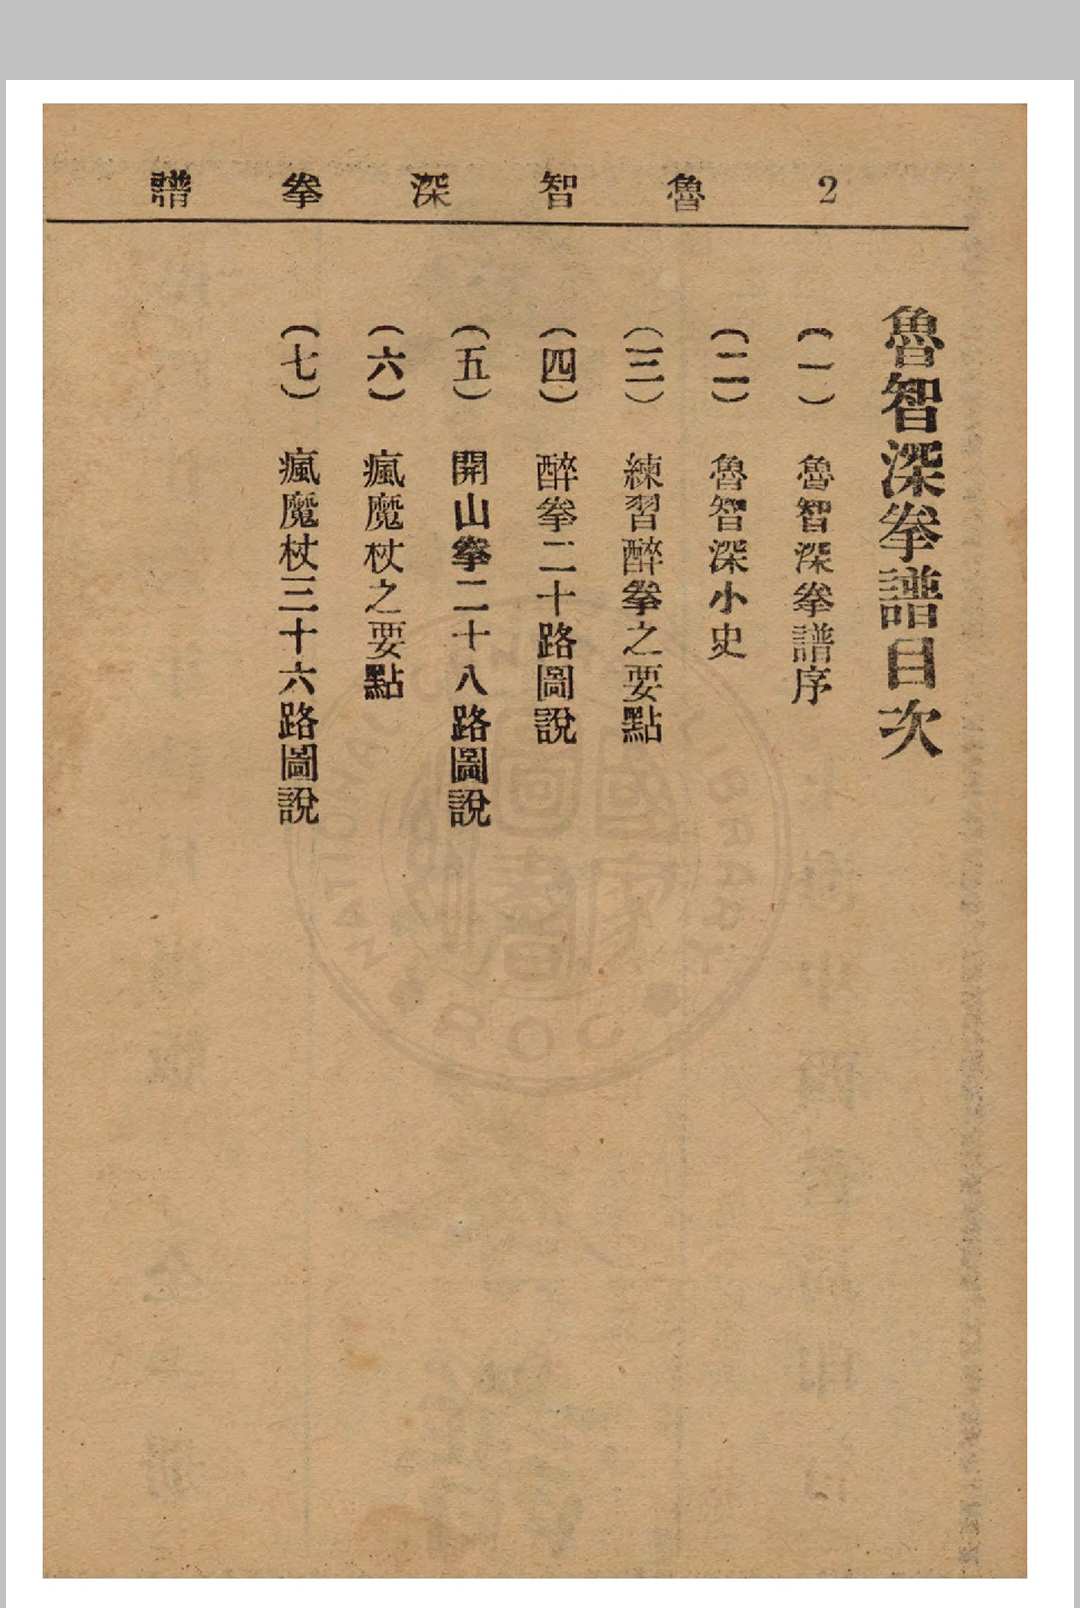 2 魯智深拳譜
魯智深拳譜目次
（一） 魯智深拳譜序
（二） 魯智深小史
（三） 練習醉拳之要點
（四） 醉拳二十路圖說
（五） 開山拳二十八路圖說
（六） 瘋魔杖之要點
（七） 瘋魔杖三十六路圖說